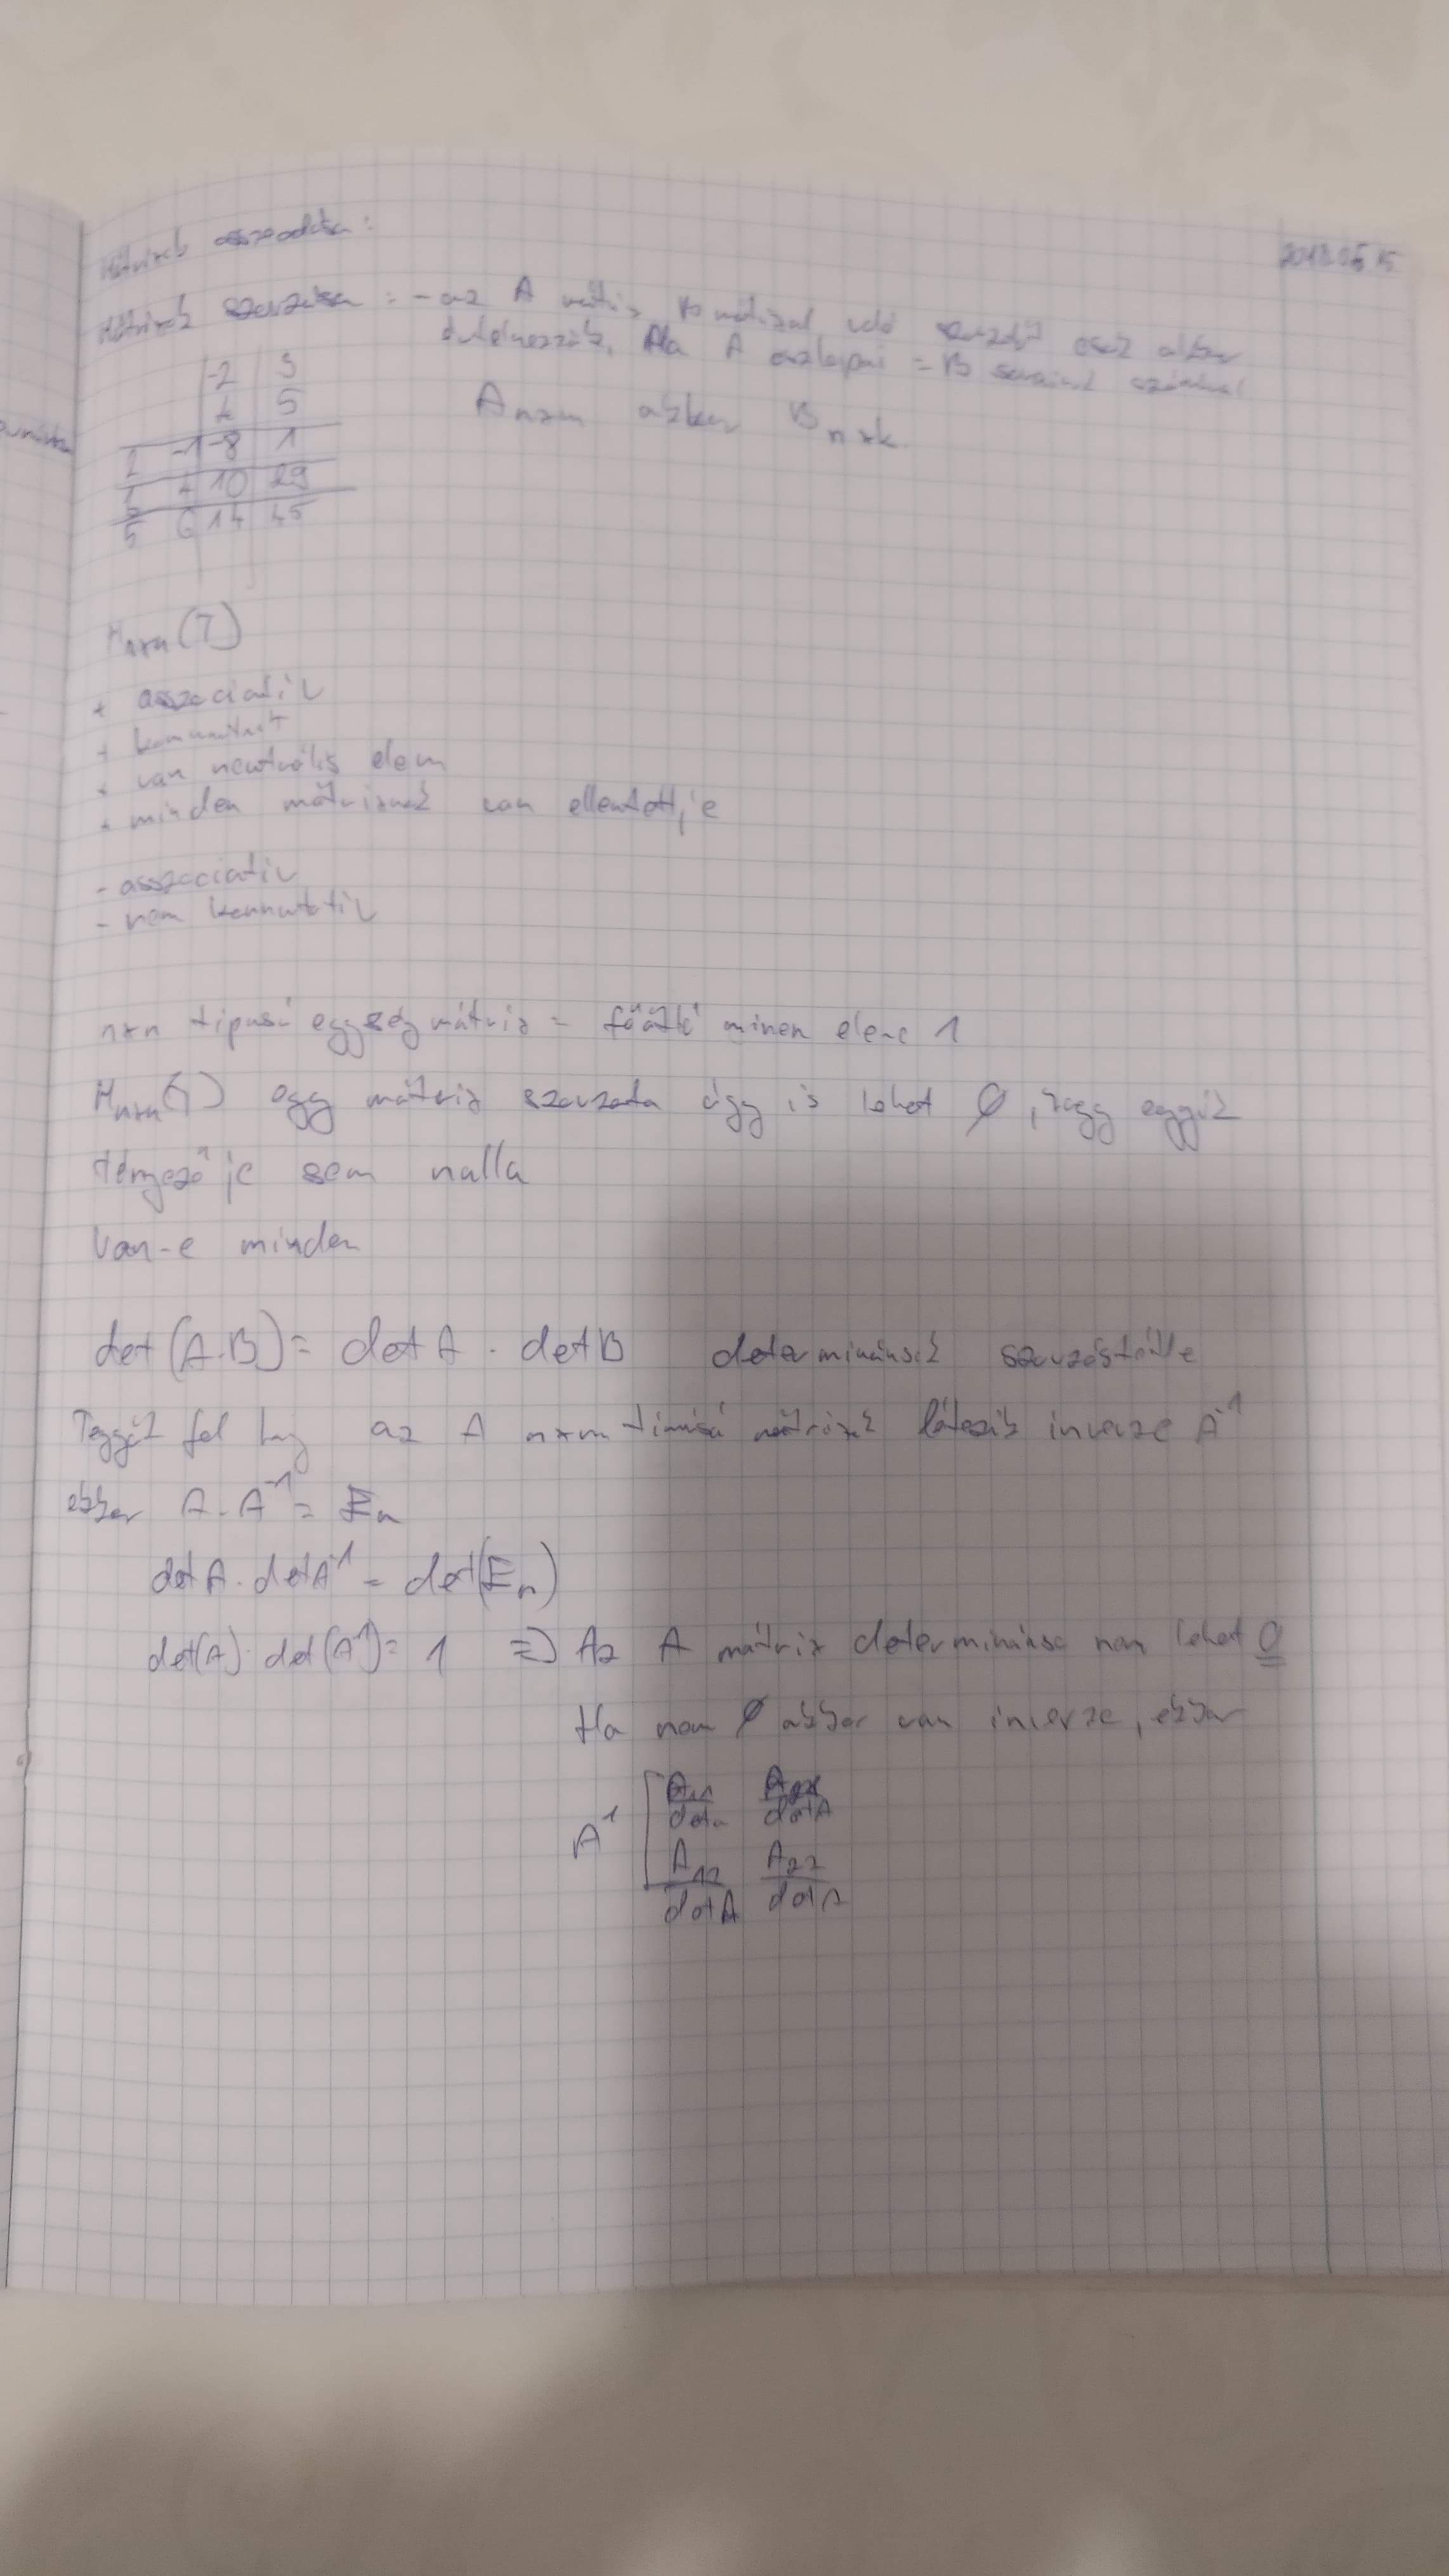 Mátrixok összeadása:
2018.05.15
Mátrixok szorzása : - az A mátrix B mátrixal való szorzását csak akkor
értelmezzük, Ha A oszlopai = B sorainak számával
-2 3
4 5
2 -1 -8 1
3 4 10 29
5 6 14 45
Anxm akkor Bnxk
Mnxn(T)
+ asszociatív
+ kommutat
+ van neutrális elem
+ minden mátrixnak van ellentettje
- asszociatív
- nem kommutatív
nxn tipusú egység mátrix = főátló minen eleme 1
Mnxn(T) egy mátrix szorzata úgy is lehet 0, hogy eggyik
tényezője sem nulla
Van-e minden
det(A.B) = detA . detB determinánsok szorzástétle
Teggyük fel hogy az A nxn mátrixnak létezik inverze A-1
ekkor A.A-1 = En
detA.detA-1 = det(En)
det(A).det(A-1) = 1 => Az A mátrix determinánsa nem lehet 0
Ha nem 0 akkor van inverze, ekkor
A-1
A11 A21
detA detA
A12 A22
detA detA